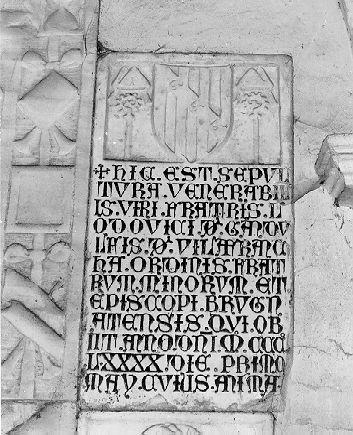 + HIC . EST . SEPUL
TVRA . VENERABIL
IS . VIRI . FRATRIS . L
ODOVICI . D . GANDU
LFIS . D . VILAFRANC
HA . ORDINIS . FRAT
RUM . MINORUM . ET
EPISCOPI . BRUGN
ATENSIS . QVI . OB
IIT . ANO . DNI . M . CCC
LXXXX . DIE . PRIMO
MAV . CVIUS . ANIMA